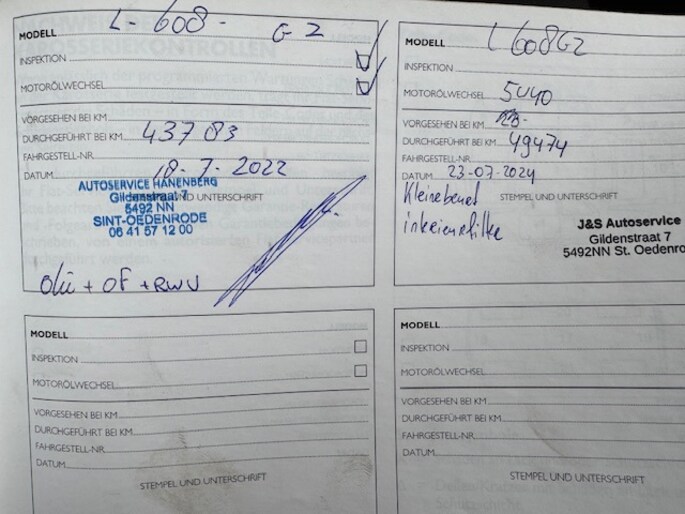 MODELL L-608-G2
INSPEKTION
MOTORÖLWECHSEL
VORGESEHEN BEI KM
DURCHGEFÜHRT BEI KM 43783
FAHRGESTELL-NR.
DATUM 18-7-2022
AUTOSERVICE HANENBERG
Gildenstraat 7
5492 NN
SINT-OEDENRODE
06 41 57 12 00
STEMPEL UND UNTERSCHRIFT
olie + OF + RWV
MODELL L608G2
INSPEKTION
MOTORÖLWECHSEL 5W40
VORGESEHEN BEI KM
DURCHGEFÜHRT BEI KM 49474
FAHRGESTELL-NR.
DATUM 23-07-2024
STEMPEL UND UNTERSCHRIFT
Kleinebeurt
J&S Autoservice
Gildenstraat 7
5492NN St. Oedenro
MODELL
INSPEKTION
MOTORÖLWECHSEL
VORGESEHEN BEI KM
DURCHGEFÜHRT BEI KM
FAHRGESTELL-NR.
DATUM
STEMPEL UND UNTERSCHRIFT
MODELL
INSPEKTION
MOTORÖLWECHSEL
VORGESEHEN BEI KM
DURCHGEFÜHRT BEI KM
FAHRGESTELL-NR.
DATUM
STEMPEL UND UNTERSCHRIFT